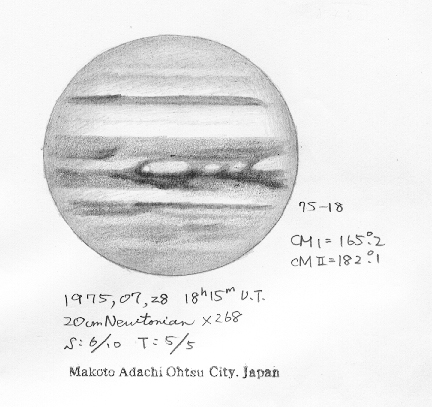 75-18
CM I = 165°.2
CM II = 182°.1
1975, 07, 28 18h 15m U.T.
20cm Newtonian ×268
S: 6/10 T: 5/5
Makoto Adachi Ohtsu City. Japan